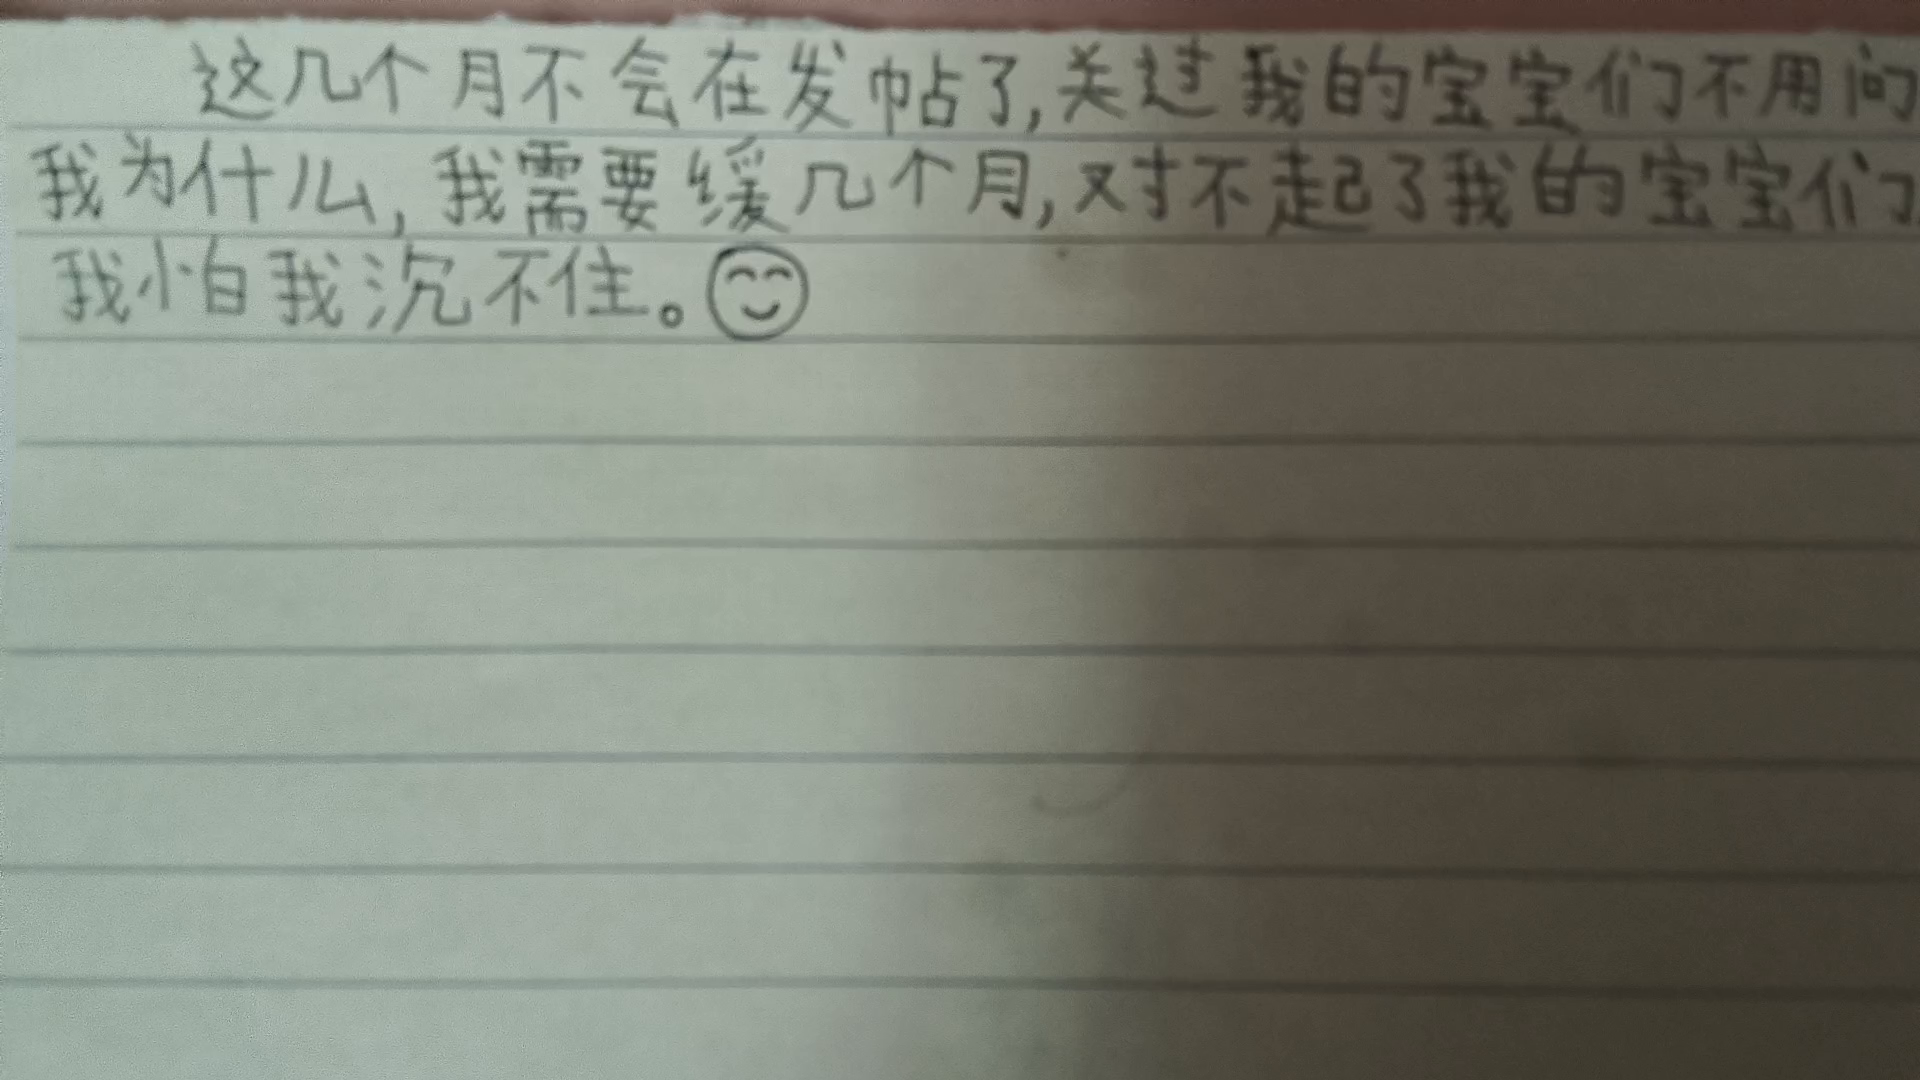 这几个月不会在发帖了,关过我的宝宝们不用问
我为什么,我需要缓几个月,对不起了我的宝宝们
我怕我沉不住。